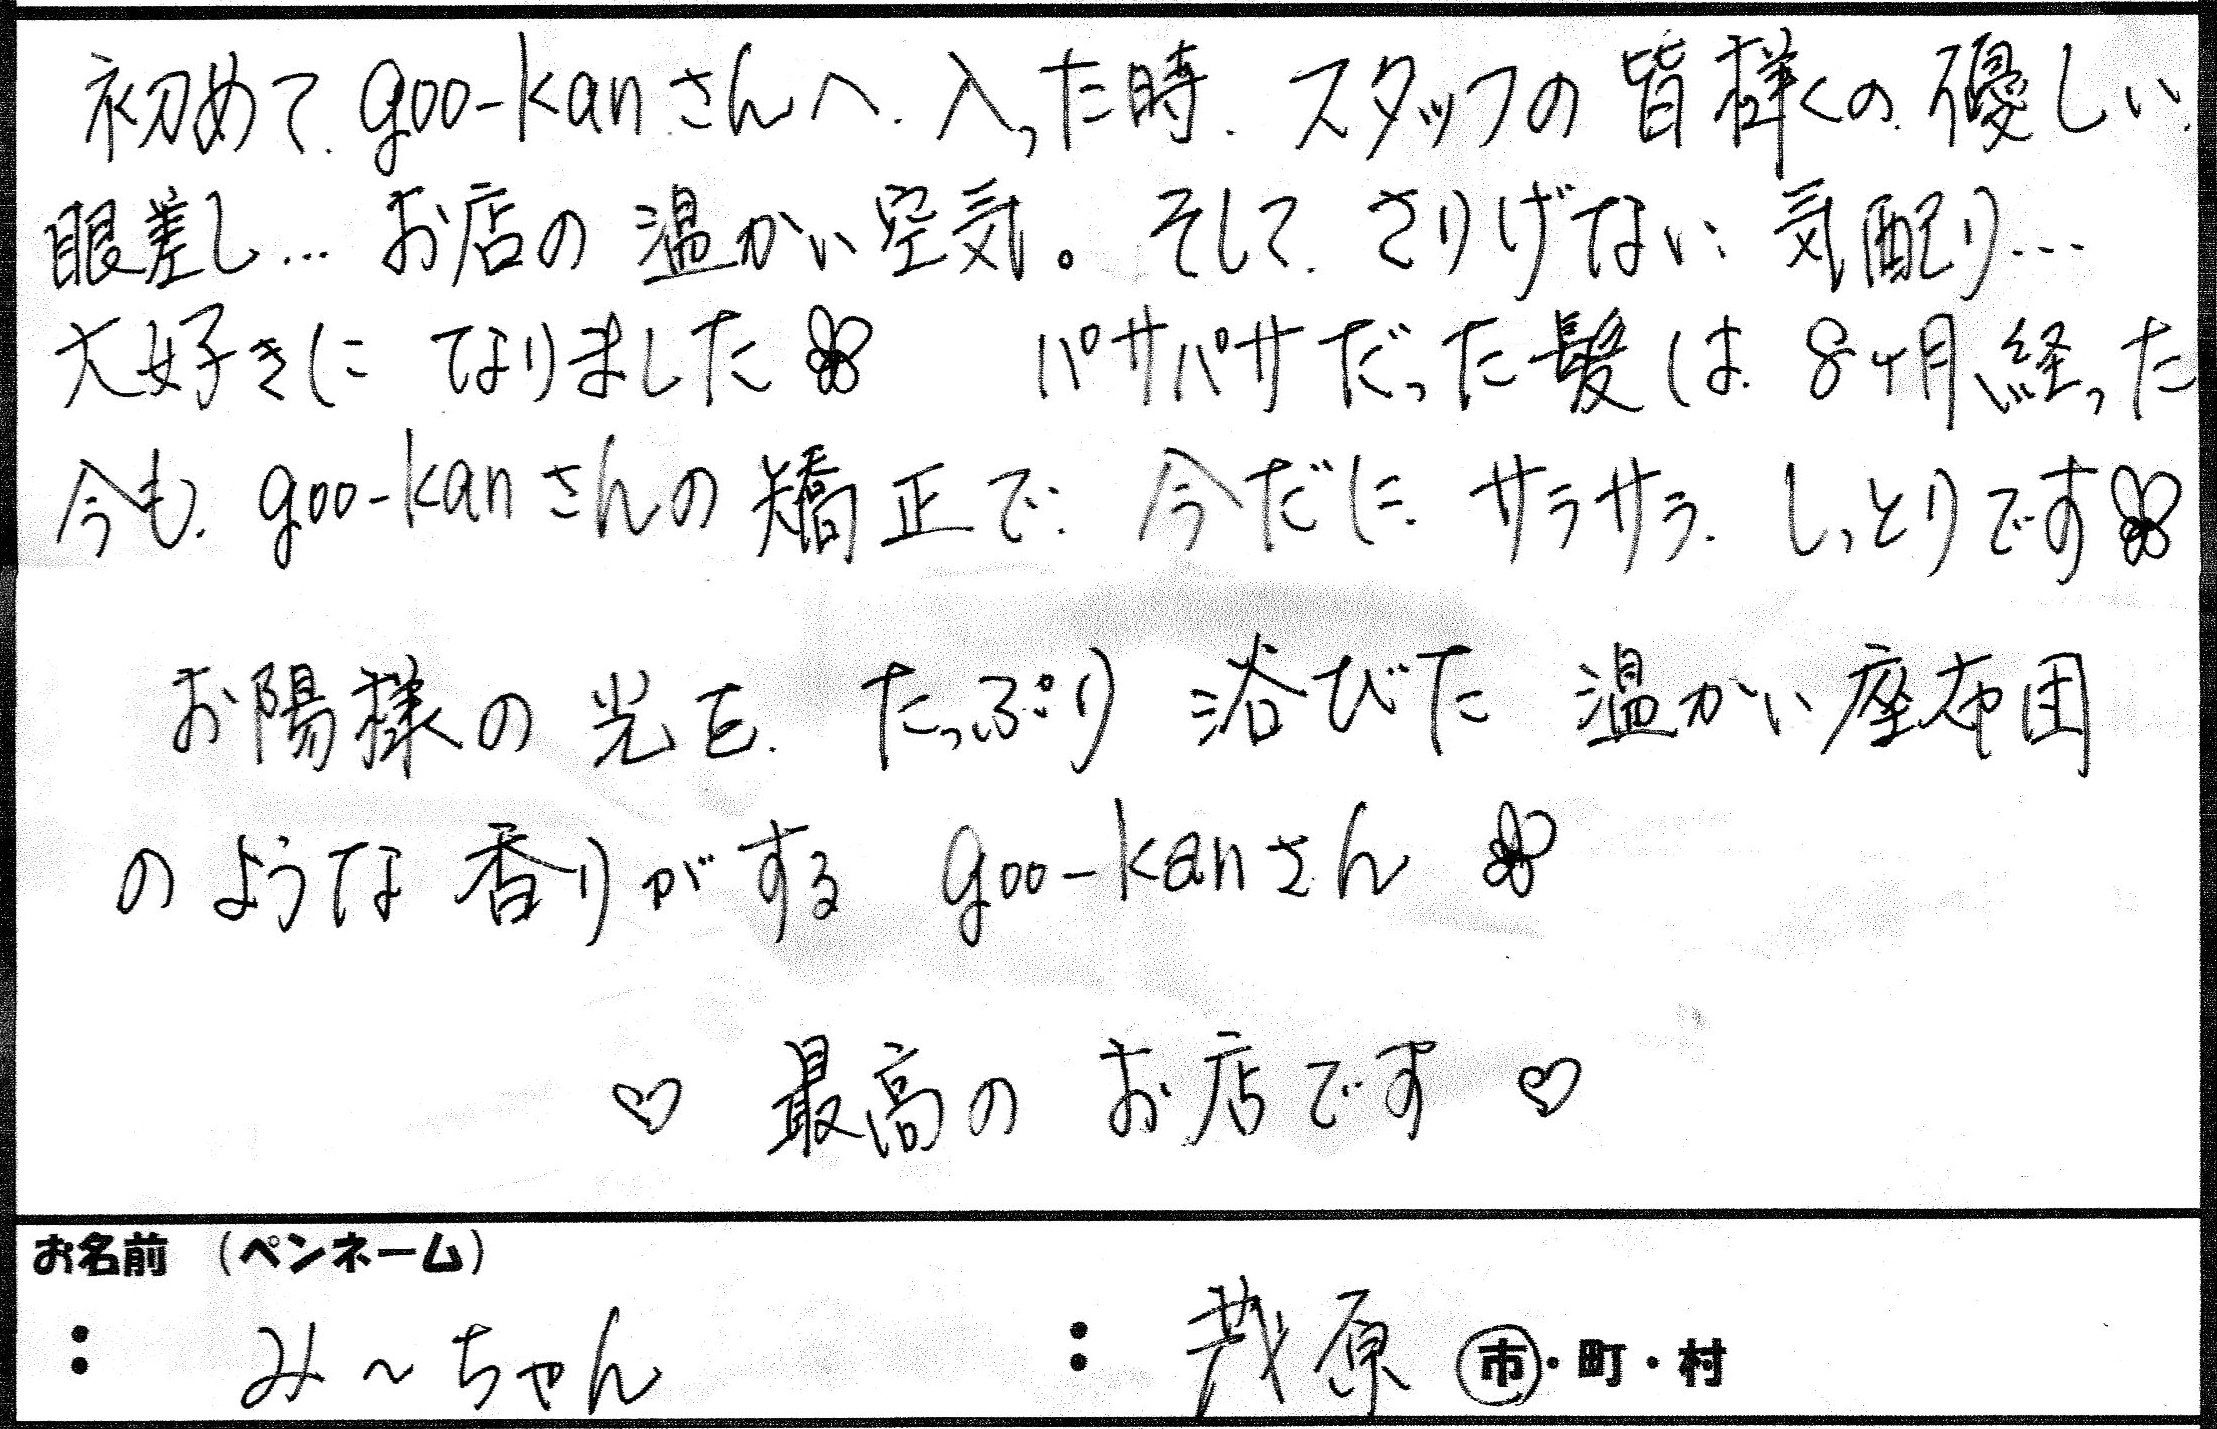 初めて、goo-kanさんへ、入った時、スタッフの皆様々の、優しい、
眼差し…お店の温かい空気。そして、さりげない気配り…
大好きになりました パサパサだった髪は、8ヶ月経った
今も、goo-kanさんの矯正で、今だに、サラサラ、しっとりです
お陽様の光を、たっぷり浴びた温かい座布団
のような香りがする goo-kanさん
♡ 最高のお店です ♡
お名前 （ペンネーム）
： み～ちゃん ： 茂原 市・町・村